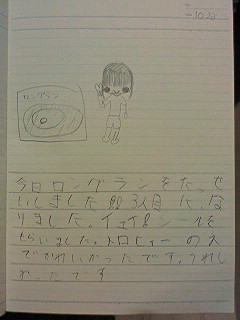 10.28
ロングラン
今日ロングランをたっせ
いしました。83人目にな
りました。イェイ!シールを
もらいました。トロヒィーのえ
でかわいかったです。うれし
かったです